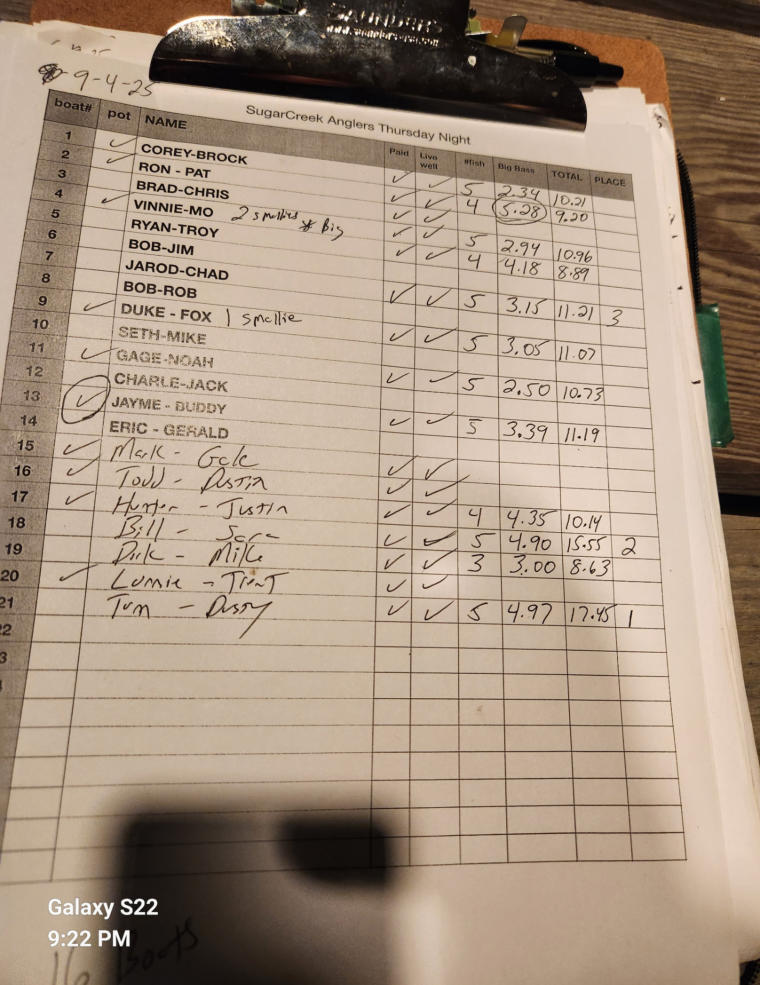 SAUNDERS
9-4-25
SugarCreek Anglers Thursday Night
boat# pot NAME Paid Live well #fish Big Bass TOTAL PLACE
1 ✓ COREY-BROCK ✓ ✓ 5 2.34 10.21
2 ✓ RON - PAT ✓ 4 5.28 9.20
3 BRAD-CHRIS ✓ ✓
4 ✓ VINNIE-MO 2 smallies * Big ✓ ✓ 5 2.94 10.96
5 RYAN-TROY ✓ ✓ 4 4.18 8.89
6 BOB-JIM
7 JAROD-CHAD
8 BOB-ROB ✓ ✓ 5 3.15 11.21 3
9 ✓ DUKE - FOX 1 smallie
10 SETH-MIKE ✓ ✓ 5 3.05 11.07
11 ✓ GAGE-NOAH
12 CHARLE-JACK ✓ ✓ 5 2.50 10.73
13 ✓ JAYME - BUDDY
14 ERIC - GERALD ✓ ✓ 5 3.39 11.19
15 ✓ Mark - Gale ✓ ✓
16 ✓ Todd - Dustin ✓ ✓
17 ✓ Hunter - Justin ✓ ✓ 4 4.35 10.14
18 Bill - ✓ ✓ 5 4.90 15.55 2
19 Dick - Mike ✓ ✓ 3 3.00 8.63
20 ✓ Lonnie - Trent ✓ ✓
21 Tom - Dusty ✓ ✓ 5 4.97 17.45 1
22
3
Galaxy S22
9:22 PM
16 Boats